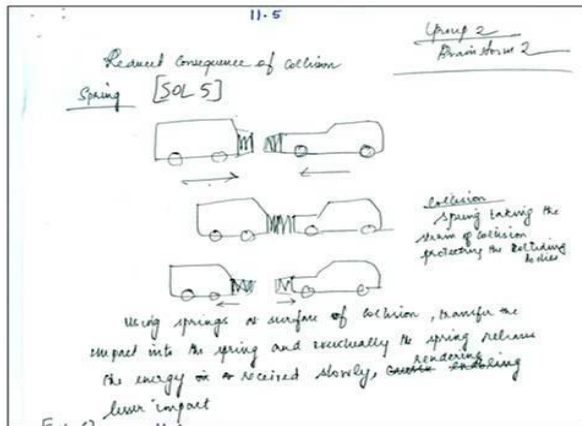 11.5
Group 2
Brainstorm 2
Reduced Consequence of Collision
Spring [SOL 5]
Collision
Spring taking the
strain of collision
protecting the colliding
bodies
Using springs at surface of collision, transfer the
impact into the spring and eventually the spring releases
the energy received slowly, rendering
lesser impact